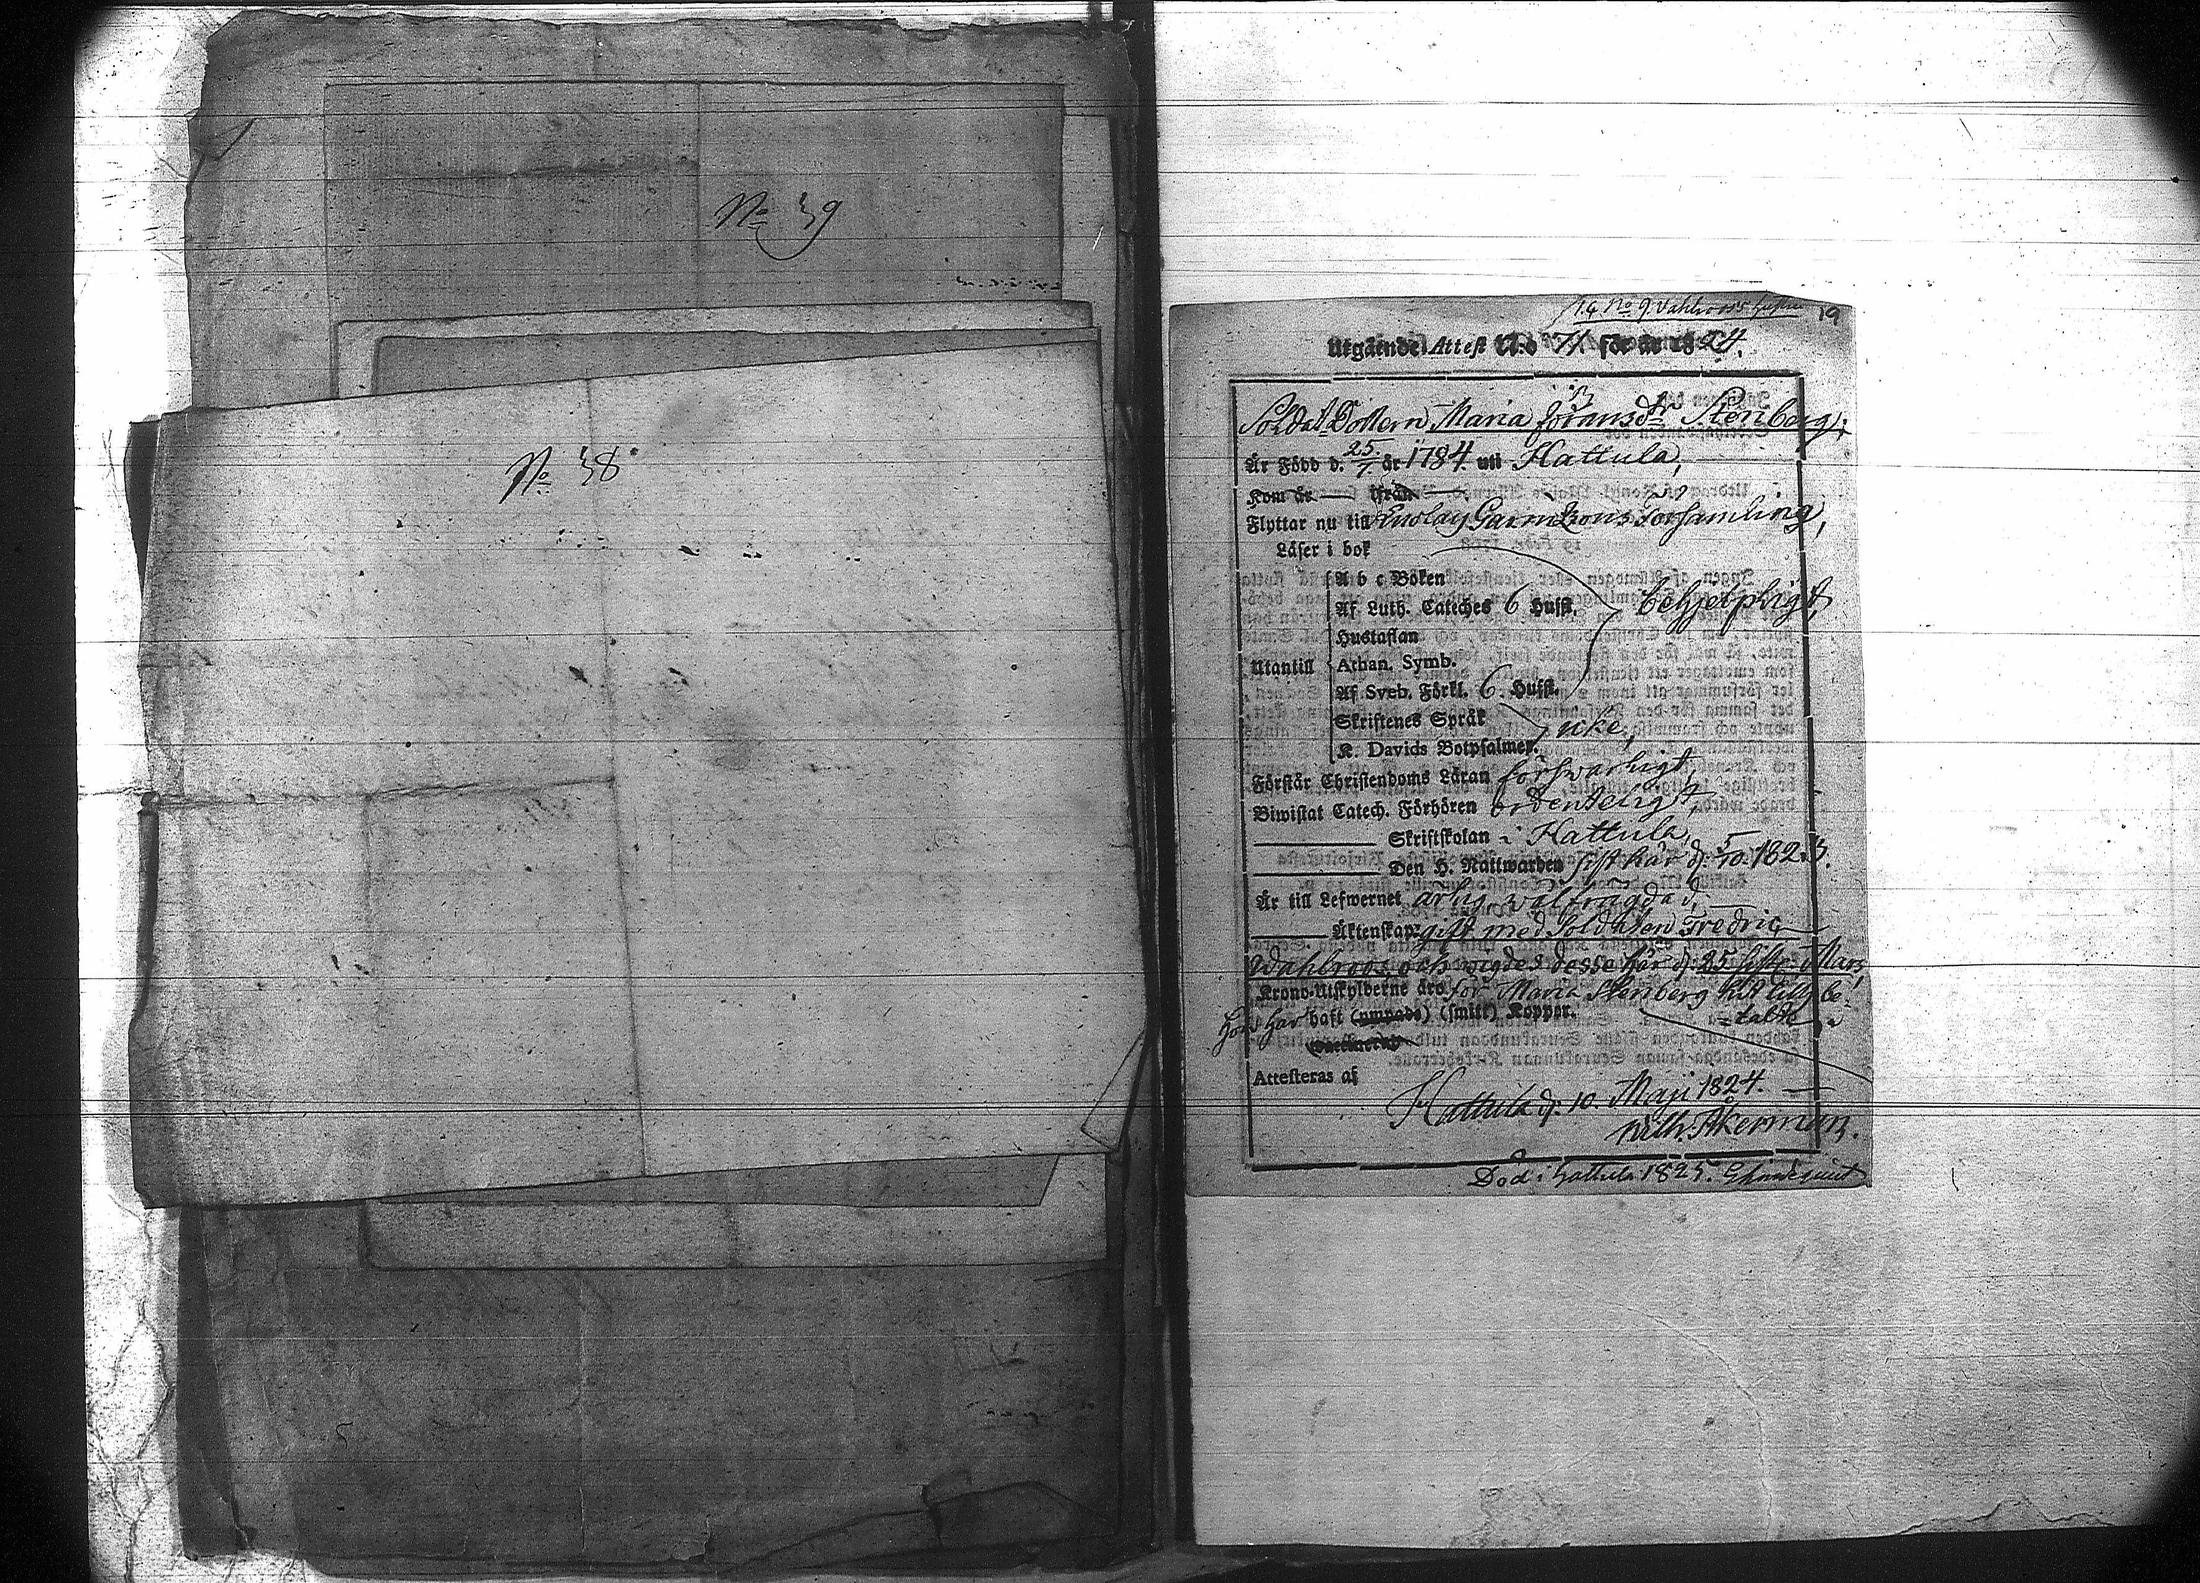 No 39
No 38
14 No 9. Vahlroos hustru 19
Utgående Attest N:o 71 för år 1824.
Soldat Dottern Maria Jöransdr Stenberg,
Är Född d. 25/7 år 1784. uti Hattula,
Kom år — ifrån —
Flyttar nu till Garnizons Församling,
Läser i bok
A b c Boken
Af Luth. Cateches 6 Hufst. behjelpligt,
Hustaflan
Utantill Athan. Symb.
Af Sveb. Förkl. 6 Hufst.
Skriftenes Språk
icke,
K. Davids Botpsalmer.
Förstår Christendoms Läran försvarligt,
Biwistat Catech. Förhören ordenteligt,
Skriftskolan i Hattula,
Den H. Nattwarden sist här d. 5/10. 1823.
Är till Lefwernet ärlig, välfrägdad,
Äktenskap: gift med Soldaten Fredric
Wahlroos, och vigdes desse här d. 25 sistl. Mars,
Krono-Utskylderne äro för Maria Stenberg hit tills be-
=talte.
Hon har haft (ympade) (smitt) Koppor.
Attesteras af
Hattula d. 10. Maji 1824.
Wilh. Åkerman.
Död i Hattula 1825.